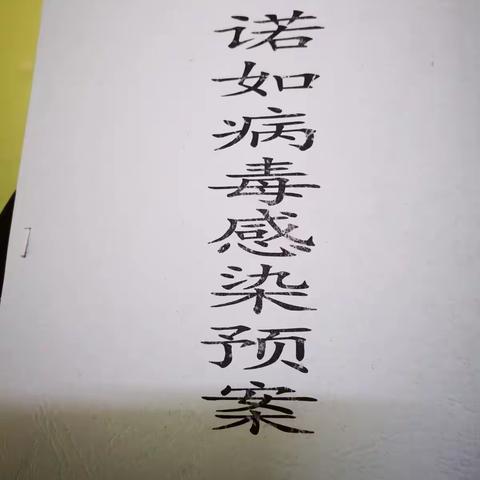 诺如病毒感染预案